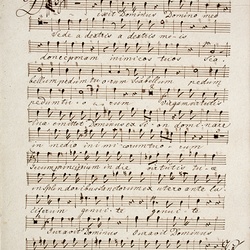 Dixit Dominus Domino meo
Sede a dextris a dextris meis
donec ponam inimicos tuos Sca
bellum pedum tuorum Scabellum pedum
pedum tuorum Virgam virtutis
tuae emittet Dominus ex Sion dominare
in medio inimicorum tuorum
Tecum principium in die virtutis tuae
in splendoribus Sanctorum ex utero ante lu
ciferum genui te genui te
Juravit Dominus Juravit Dominus